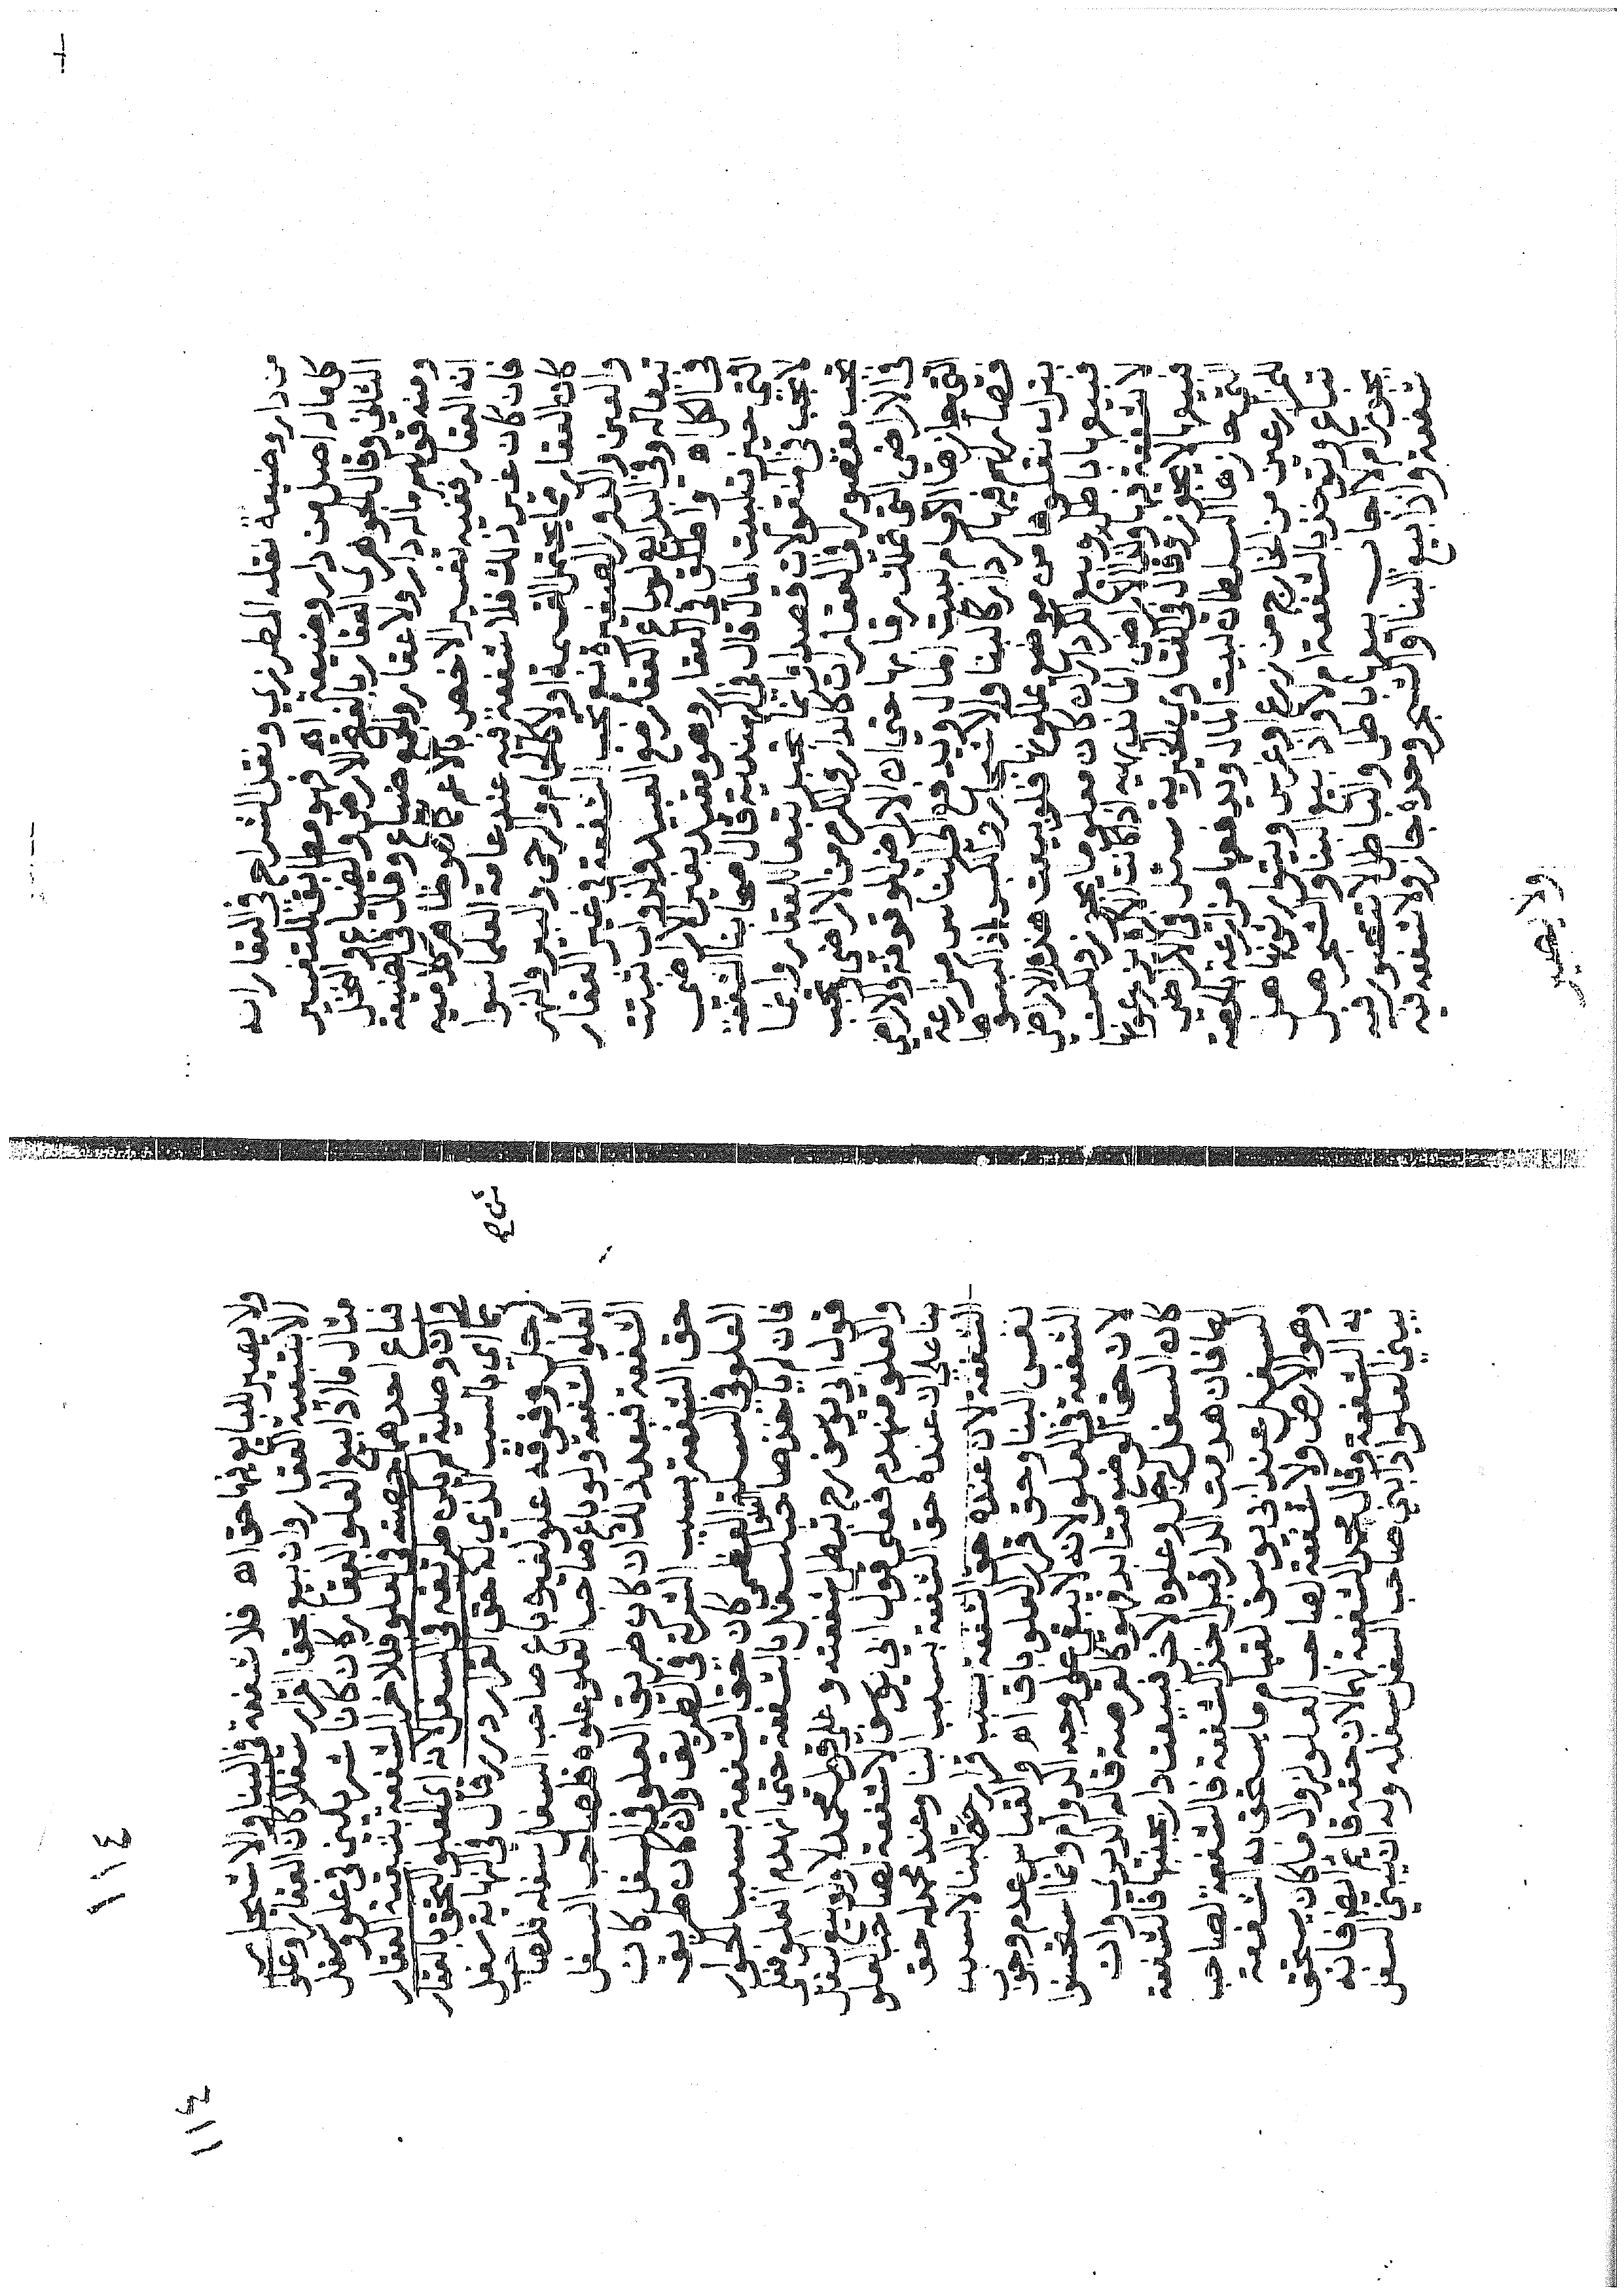 من دار وضيعة نقله المطرزي ونقل الشراح في العقار انه
كل ماله اصل من دار وضيعة اه فهو مطابق للتفسير
الثاني وقال الجوهري العقار بالفتح الارض والضياع والنخل
ومنه قولهم ماله دار ولا عقار وجمع ضياع وقال في الضيعة
انه العقار ففيه تفسير الاخص بالاعم كما هو ظاهر كلاميه
فان كان غير ذلك فلا شفعة فيه عند عامة العلما سوا
كان العقار مما يحتمل القسمة اولا كالحمام والرحى والبير والنهر
والعين والدور الصغيرة نعم تجب الشفعة في غير العقار
تبعا له وفي البدايع لو باع العقار مع العبيد والدواب تثبت
في الكل اه واطلق في العقار وهو مقيد بغير الاراضي
التي حيزت لبيت المال قال في الهندية قال اصحابنا الشفعة
لا تجب في المنقولات قصدا وانما تجب تبعا للعقار وانما
تجب مقصورة في العقارات كالدار والكرم من الاراضي وتجب
في الاراضي التي تملك رقابها حتى ان الاراضي لو موقوفة والاراضي
التي حازها الامام لبيت المال ويدفع الى الناس مزارعة
فصار لهم فيها كردار كالبنا والاشجار والكبس اذا كبسوها
بتراب نقلوها من موضع يملكونها فلو بيعت هذه الاراضي
فبيعها باطل وبيع الكردار ان كان معلوما يجوز ولكن
لا شفعة فيها وكذا الاراضي المايانديهية اذا كانت الاكرة يزرعونها
فبيعها لا يجوز وقال في الفتاوى الخيرية سئل في الاراضي
التي حازها السلطان لبيت المال ويدفعها مزارعة بالحصة
للمزارعين من الخارج من زرع او غرس ويتوارثونها هل
تباع وتوخذ بالشفعة ام لا واذا بيع البنا والشجر هل
يجوز ام لا اجاب بيعها باطل والباطل لا تتصور فيه
شفعة واذا بيع البنا والشجر وحده جاز ولا شفعة فيه
ولا يصير
١١٤
١١٤
ولا يصير للبايع بها حق اه فلا شفعة في البنا والاشجار
الا بتبعية العقار وان بيع بحق القرار سفلا كان العقار او علو
مثال ما اذا بيع العلو العقار كان كانا شريكين في علو وسفل
فباع احدهما حصته في العلو فللاخر الشفعة بتبعية العقار
وان وصلية لم يكن طريقه في السفل لانه اي العلو التحق بالعقار
بما اي بالسبب الذي له حق القرار درر قال في النهاية سفل
لرجل وفوقه علو لغيره باع صاحب السفل سفله فلصاحب
العلو الشفعة ولو باع صاحب العلو علوه فلصاحب السفل
الشفعة فبعد ذلك ان كان طريق العلو في السفل كان
حق الشفعة بسبب الشركة في الطريق وان كان طريق
العلو في السكة العظمى كان حق الشفعة بسبب الجوار
فان لم ياخذ صاحب العلو السفل بالشفعة حتى انهدم العلو فعلى
قول ابي يوسف رح تبطل شفعته وعلى قول محمد لا ولو بيع السفل
والعلو منهدم فعلى قول ابي يوسف لا شفعة لصاحب العلو
بنا على ان عنده حق الشفعة بسبب البنا وعند محمد له حق
الشفعة لان عنده حق الشفعة بسبب قرار حق البنا لا بسبب
نفس البنا وحق قرار العلو باق اه والقياس عدم وجوب
الشفعة في العلو لانه لا يبقى على وجه الدوام وانما استحسنوا
لان حق الوضع متابد فهو كالعرصة قاله الزيلعي وان
كان السفل لرجل وعلوه لاخر فبيعت دار بجنبها فالشفعة
لهما فان هدمت الدار قبل اخذ الشفعة فالشفعة لصاحب
السفل عند ابي يوسف لقيام ما يستحق به الشفعة
وهو الارض ولا شفعة لصاحب العلو لزوال ما كان يستحق
به الشفعة وقال محمد الشفعة لهما لان حقه قايم ايضا فانه
يبني العلو اذا بنى صاحب السفل سفله وله ان يبني السفل